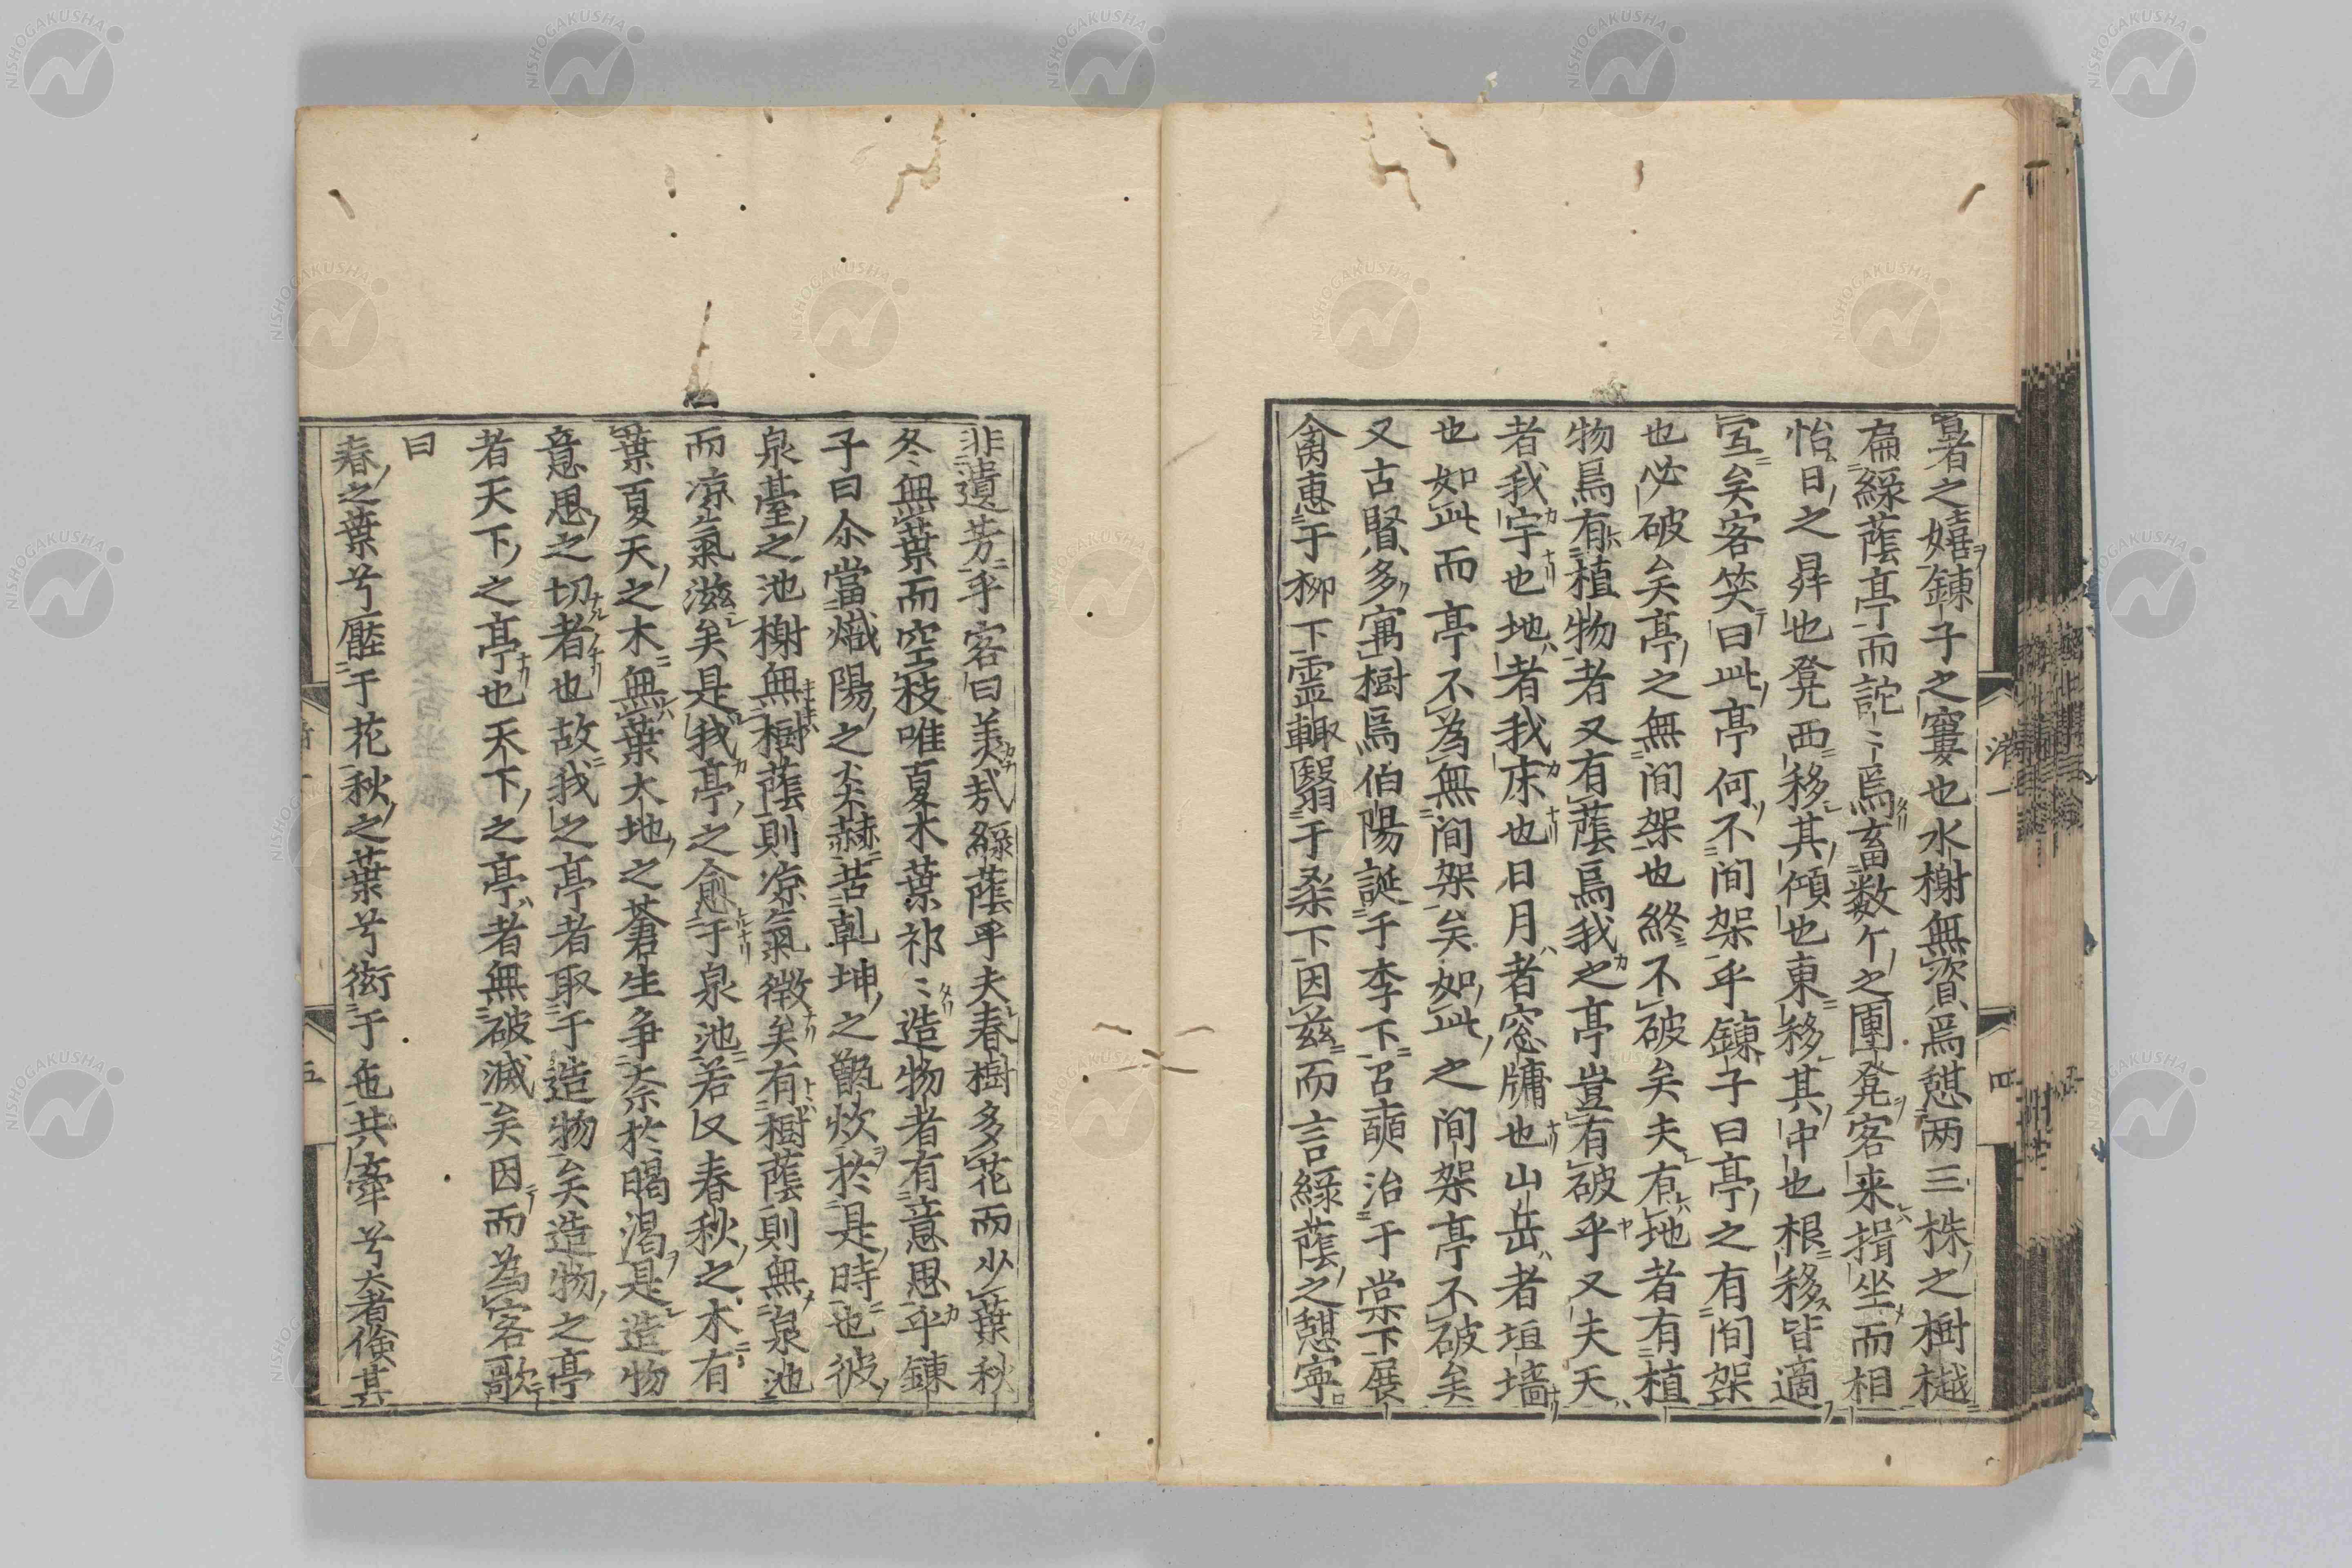 暑之嬉錬子之窶也水榭無資焉憩两三株之樹樾
扁緑蔭亭而詑〻焉畜数个之團凳客来揖坐而相
怡日之昇也凳西移其傾也東移其中也根移皆適
宜矣客笑曰此亭何不间架乎錬子曰亭之有间架
也必破矣亭之無间架也終不破矣夫有地者有植
物焉有植物者又有蔭焉我之亭豈有破乎又夫天
者我宇也地者我床也日月者窓牗也山岳者垣墙
也如此而亭不為無间架矣如此之间架亭不破矣
又古賢多寓樹焉伯陽誕于李下召奭治于棠下展
禽惠于柳下霊輙翳于桑下因兹而言緑蔭之憩寧
非遺芳乎客曰美哉緑蔭乎夫春樹多花而少葉秋
冬無葉而空枝唯夏木葉祁〻造物者有意思乎錬
子曰尒當熾陽之炎赫苦乹坤之甑炊於是時也彼
泉臺之池榭無樹蔭則凉氣徴矣有樹蔭則無泉池
而凉氣滋矣是我亭之愈于泉池若又春秋之木有
葉夏天之木無葉大地之蒼生争奈於暍渇是造物
意思之切者也故我之亭者取于造物矣造物之亭
者天下之亭也天下之亭者無破滅矣因而為客歌
曰
春之葉兮壓于花秋之葉兮衒于色共牽兮奢儉其
濟一
四
五
NISHOGAKUSHA